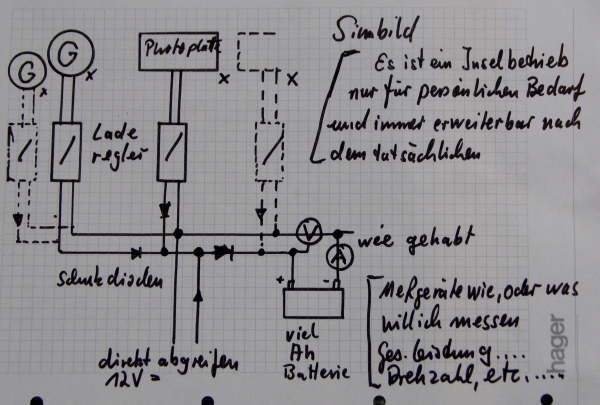 Sinnbild
Es ist ein Inselbetrieb
nur für persönlichen Bedarf
und immer erweiterbar nach
dem tatsächlichen
G
G
x
x
Photoplatt
x
x
Lade
regler
V
A
wie gehabt
Schutzdioden
+
-
viel
Ah
Batterie
direkt abgreifen
12V =
Meßgeräte wie, oder was
will ich messen
Ges. Leistung....
Drehzahl, etc.....
hager